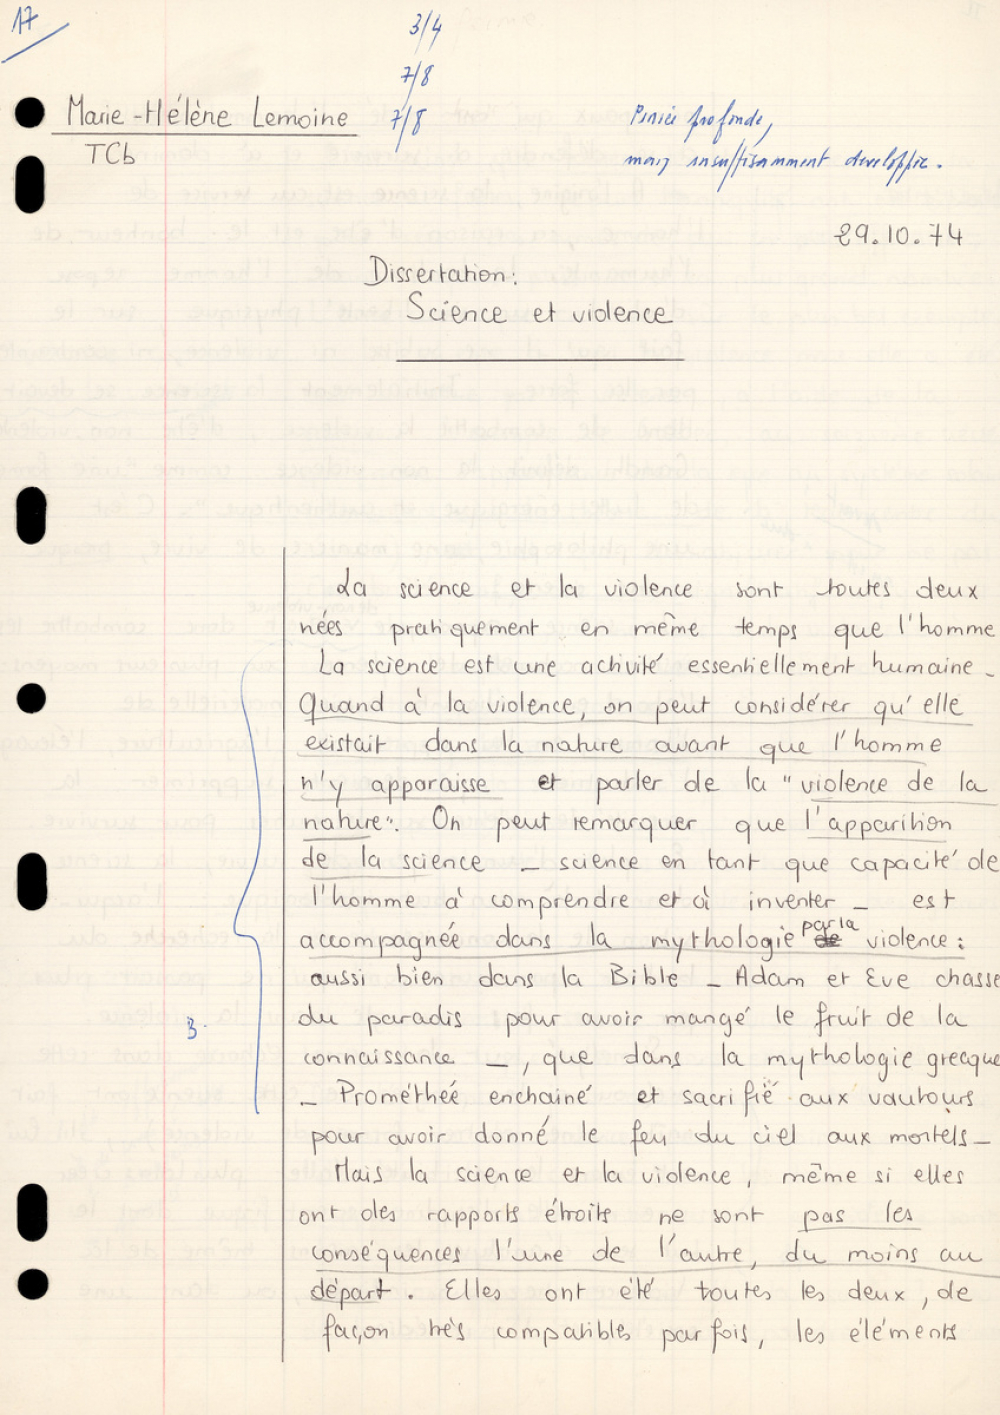 17
3/4
7/8
7/8
Marie-Hélène Lemoine
TCb
Pensée profonde,
mais insuffisamment developpée.
29.10.74
Dissertation:
Science et violence
La science et la violence sont toutes deux
nées pratiquement en même temps que l'homme
La science est une activité essentiellement humaine.
Quand à la violence, on peut considérer qu'elle
existait dans la nature avant que l'homme
n'y apparaisse et parler de la "violence de la
nature". On peut remarquer que l'apparition
de la science _ science en tant que capacité de
l'homme à comprendre et à inventer _ est
accompagnée dans la mythologie par la violence:
aussi bien dans la Bible _ Adam et Eve chassé
du paradis pour avoir mangé le fruit de la
connaissance _, que dans la mythologie grecque
_ Prométhéé enchainé et sacrifié aux vautours
pour avoir donné le feu du ciel aux mortels _
B.
Mais la science et la violence, même si elles
ont des rapports étroits ne sont pas les
conséquences l'une de l'autre, du moins au
départ. Elles ont été toutes les deux, de
façon très compatibles parfois, les éléments